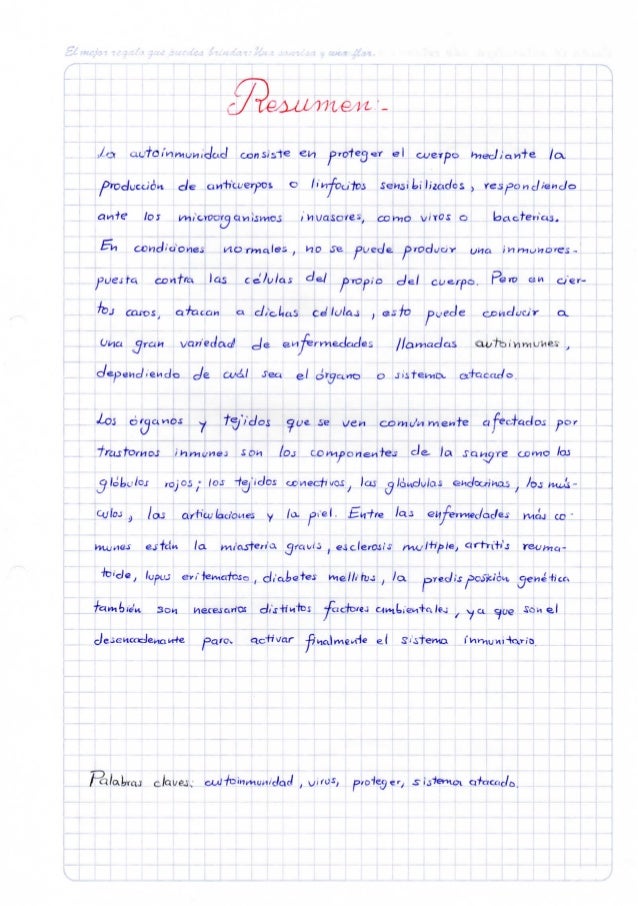 El mejor regalo que puedes brindar: Una sonrisa y una flor.
Resumen:-
La autoinmunidad consiste en proteger el cuerpo mediante la
producción de anticuerpos o linfocitos sensibilizados, respondiendo
ante los microorganismos invasores, como viros o bacterias.
En condiciones normales, no se puede producir una inmunores-
puesta contra las células del propio del cuerpo. Pero en cier-
tos casos, atacan a dichas células, esto puede conducir a
una gran variedad de enfermedades llamadas autoinmunes,
dependiendo de cuál sea el órgano o sistema atacado.
Los órganos y tejidos que se ven comúnmente afectados por
trastornos inmunes son los componentes de la sangre como los
glóbulos rojos; los tejidos conectivos, las glándulas endocrinas, los mús-
culos, las articulaciones y la piel. Entre las enfermedades más co-
munes están la miasteria gravis, esclerosis multiple, artritis reuma-
toide, lupus eritematoso, diabetes mellitus, la predisposición genética
también son necesarios distintos factores ambientales, ya que son el
desencadenante para activar finalmente el sistema inmunitario.
Palabras claves: autoinmunidad, virus, proteger, sistema atacado.